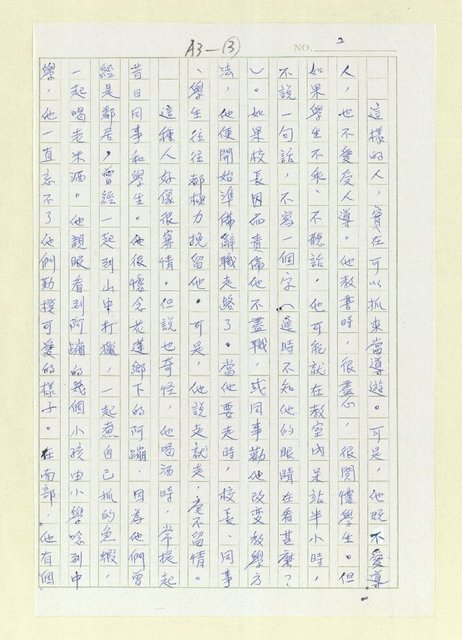 A3-③
NO. 2
這樣的人，實在可以抓來當導遊。可是，他既不愛導
人，也不愛受人導。他教書時，很盡心，很關懷學生。但
如果學生不乖、不聽話，他可能就在教室內呆站半小時，
不說一句話，不寫一個字（這時不知他的眼睛在看甚麼？
）。如果校長因而責備他不盡職，或同事勸他改變教學方
法，他便開始準備辭職走路了。當他要走時，校長、同事
、學生往往都極力挽留他。可是，他說走就走，毫不留情。
這種人好像很寡情。但說也奇怪，他喝酒時，常提起
昔日同事和學生。他很懷念花蓮鄉下的阿蹦，因為他們曾
經是鄰居，曾經一起到山中打獵，一起煮自己抓的魚蝦，
一起喝老米酒。他親眼看到阿蹦的幾個小孩由小學唸到中
學，他一直忘不了他們勤樸可愛的樣子。在南部，他有個